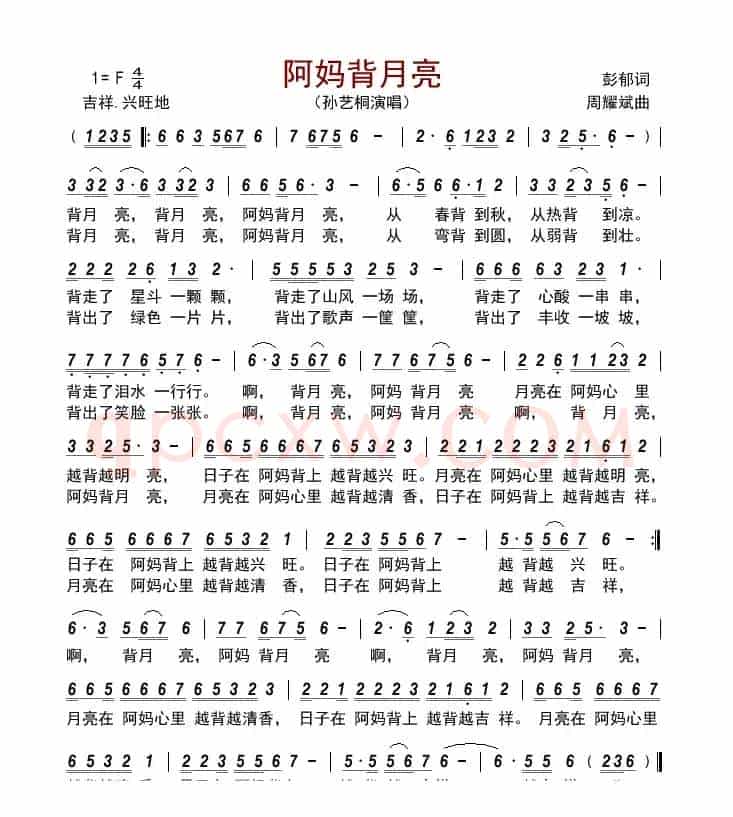 阿妈背月亮
1= F 4/4
彭郁词
吉祥.兴旺地
（孙艺桐演唱）
周耀斌曲
( 1235 ‖: 6 6 3 567 6 | 7 676 5 6 - | 2· 6 123 2 | 3 2 5· 6 - |
3 32 3·6 3 332 3 | 6 6 5 6· 3 - | 6·5 6 6·1 2 | 3 3 2 3 5 6 - |
背月 亮， 背月 亮， 阿妈背月 亮， 从 春背 到秋，从热背 到凉。
背月 亮， 背月 亮， 阿妈背月 亮， 从 弯背 到圆，从弱背 到壮。
2 2 2 2 6 1 3 2· | 5 5 5 5 3 2 5 3 - | 6 6 6 6 5 2 3 1· |
背走了 星斗 一颗 颗， 背走了山风 一场 场， 背走了 心酸 一串 串，
背出了 绿色 一片 片， 背出了歌声 一筐 筐， 背出了 丰收 一坡 坡，
7 7 7 7 6 5 7 6 - | 6·3 5 567 6 | 7 7 6 75 6 - | 2 2 6 1 1 23 2 |
背走了泪水 一行行。 啊， 背月 亮， 阿妈 背月 亮 月亮在 阿妈心 里
背出了笑脸 一张张。 啊， 背月 亮， 阿妈 背月 亮 啊， 背 月 亮，
3 3 2 5· 3 - | 6 6 5 6 6 6 7 6 5 3 2 3 | 2 2 1 2 2 2 3 2 1 6 1 2 |
越背越明 亮， 日子在 阿妈背上 越背越兴 旺。月亮在 阿妈心里 越背越明 亮，
阿妈背月 亮， 月亮在 阿妈心里 越背越清 香，日子在 阿妈背上 越背越吉 祥。
6 6 5 6 6 6 7 6 5 3 2 1 | 2 2 1 2 3 5 6 7 6 - | 5·5 5 6 7 6 - :‖
日子在 阿妈背上 越背越兴 旺。日子在 阿妈背上 越 背越 兴 旺。
月亮在 阿妈心里 越背越清 香，日子在 阿妈背上 越 背越 吉 祥，
6·3 5 567 6 | 7 7 6 75 6 - | 2·6 1 123 2 | 3 3 2 3 5 3 - |
啊， 背月 亮，阿妈 背月 亮 啊， 背月 亮，阿妈 背月 亮，
6 6 5 6 6 6 7 6 5 3 2 3 | 2 2 1 2 2 2 3 2 1 6 1 2 | 6 6 5 6 6 6 7 |
月亮在 阿妈心里 越背越清香，日子在 阿妈背上 越背越吉 祥。月亮在 阿妈心里
6 5 3 2 1 | 2 2 1 2 3 5 6 7 6 - | 5·5 5 6 7 6 - | 6· 5 5 6 - ( 236 )‖
qpcxw.com